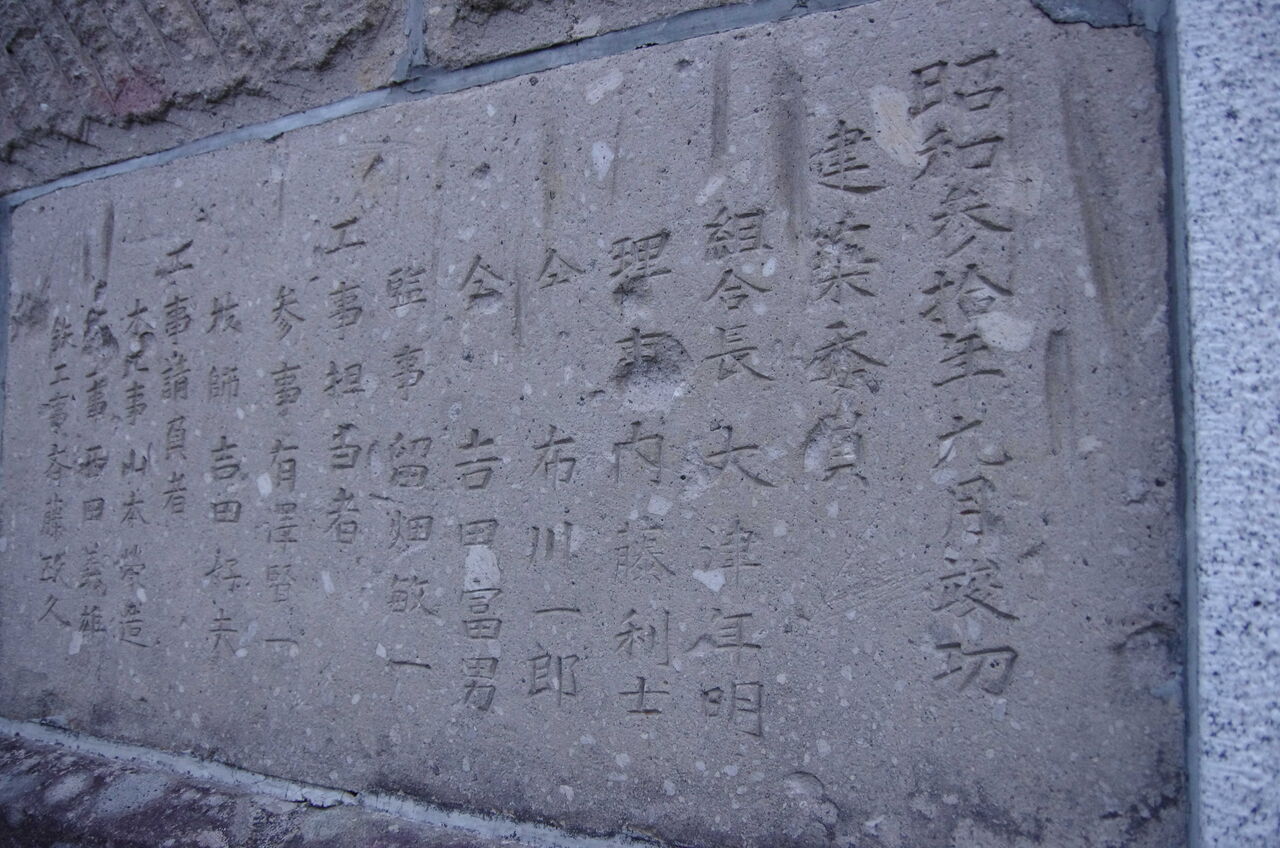 昭和参拾年六月竣功
建築委員
組合長 大津年明
理事 内藤利士
仝 布川一郎
仝 吉田富男
監事 留畑敏一
工事担当者
参事 有澤賢一
技師 吉田好夫
工事請負者
本工事 山本榮造
工事 西田義雄
鉄工事 斉藤政久